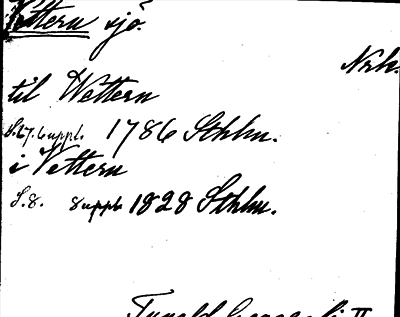 Vettern sjö.
Nrk.
til Wettern
S.27. 6 uppl. 1786 Sthlm.
i Vettern
S.8. 8 uppl 1828 Sthlm.
Tuneld Geografi II